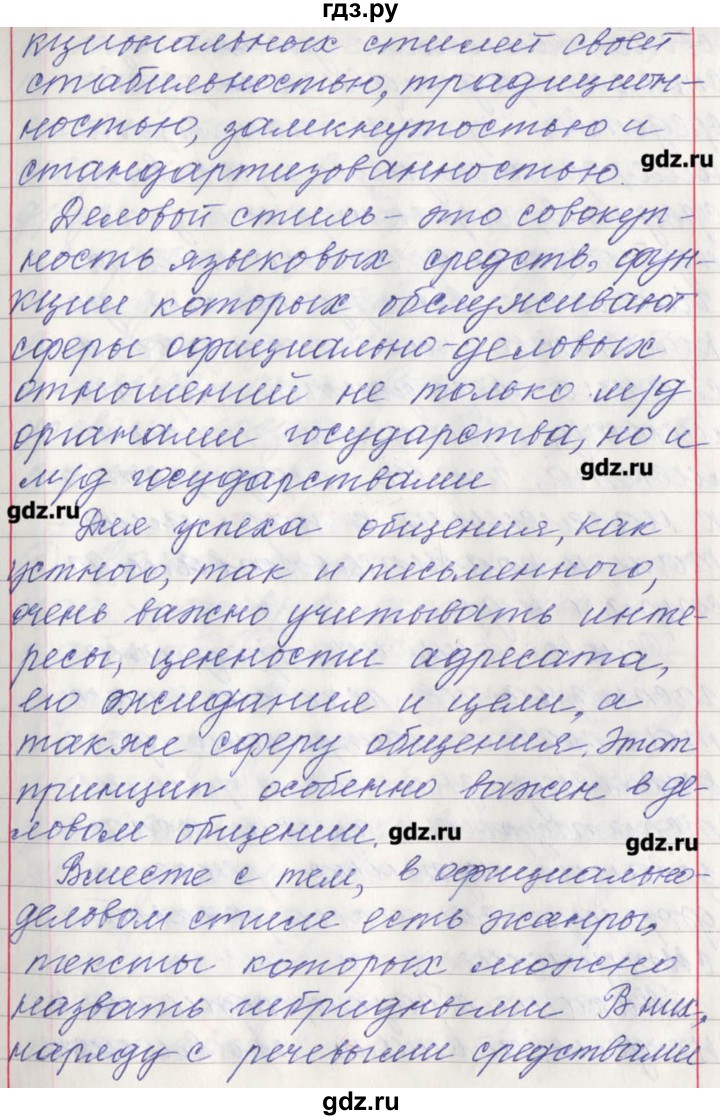 гдз.ру
кциональных стилей своей
стабильностью, традицион-
ностью, замкнутостью и
стандартизованностью.
gdz.ru
Деловой стиль – это совокуп-
ность языковых средств, фун-
кции которых обслуживают
сферы официально-деловых
отношений не только м/д
органами государства, но и
м/д государствами
gdz.ru
gdz.ru
Для успеха общения, как
устного, так и письменного,
очень важно учитывать инте-
ресы, ценности адресата,
его ожидания и цели, а
также сферу общения. Этот
принцип особенно важен в де-
ловом общении.
gdz.ru
gdz.ru
Вместе с тем, в официально-
деловом стиле есть жанры,
тексты которых можно
назвать гибридными В них,
наряду с речевыми средствами
gdz.ru